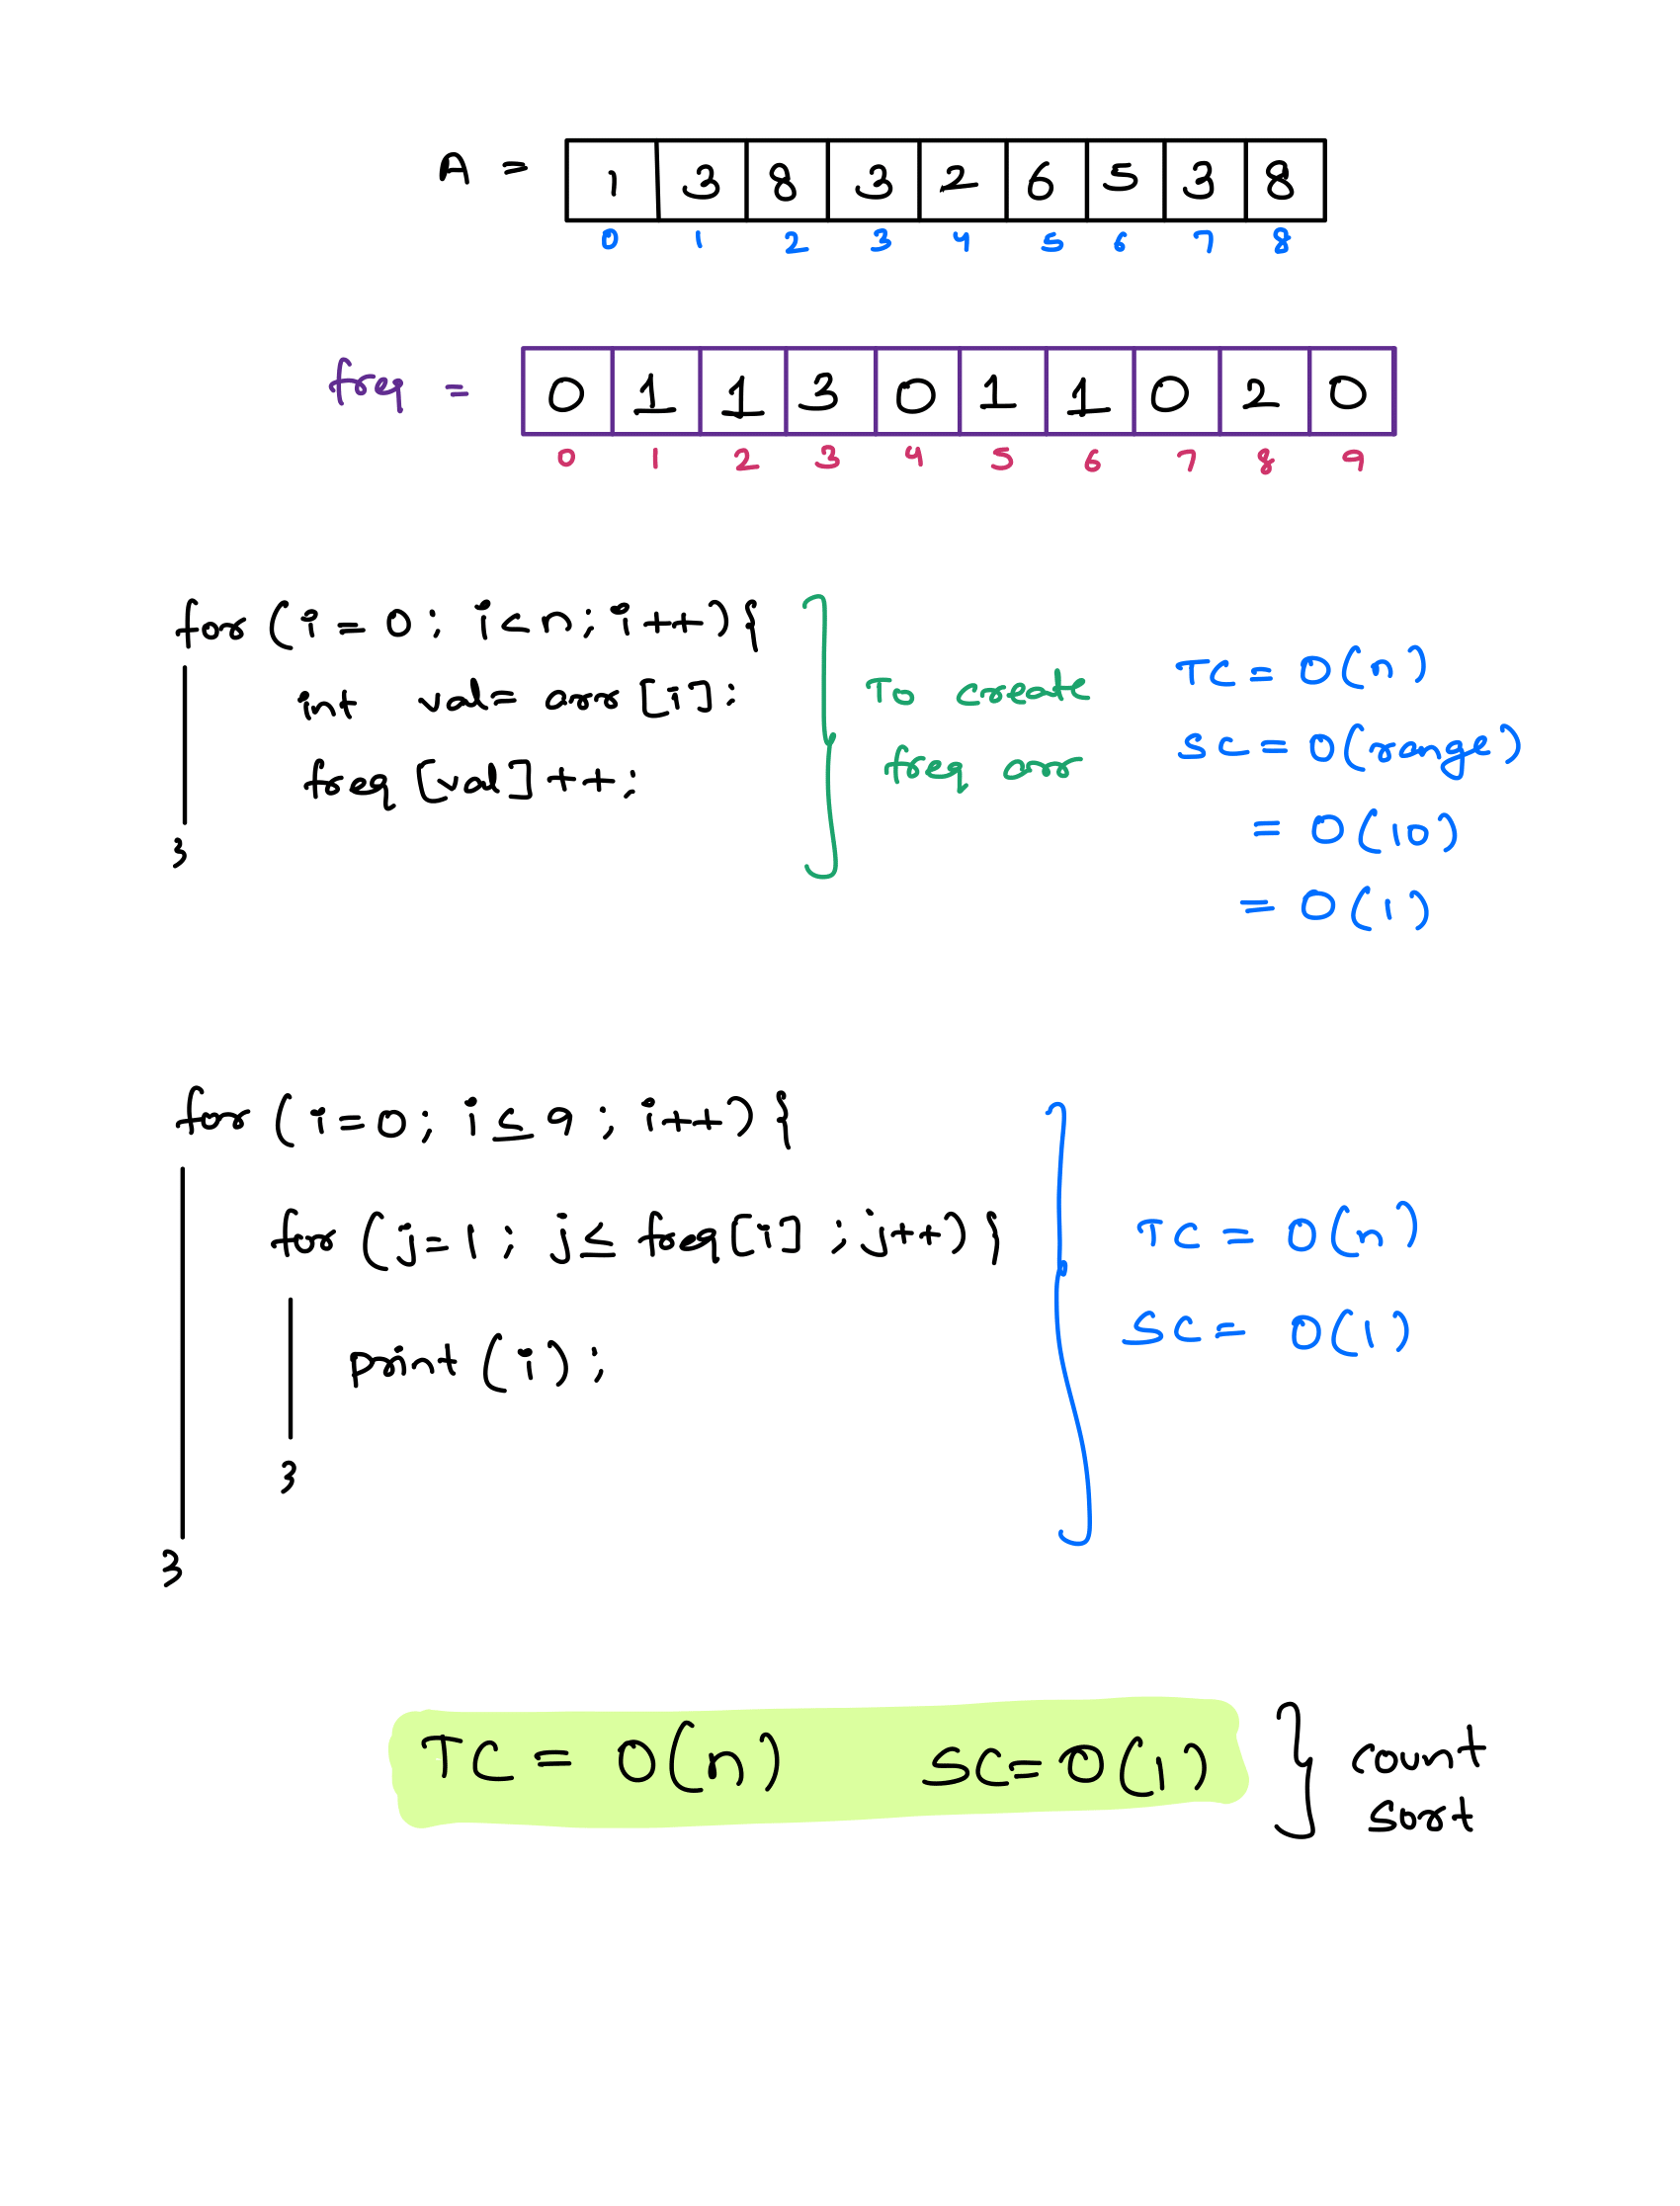 A = 1 3 8 3 2 6 5 3 8
0 1 2 3 4 5 6 7 8
freq = 0 1 1 3 0 1 1 0 2 0
0 1 2 3 4 5 6 7 8 9
for (i = 0; i < n; i++) {
int val = arr [i];
freq [val]++;
}
To create
freq arr
TC = O(n)
SC = O(range)
= O(10)
= O(1)
for (i=0; i ≤ 9; i++) {
for (j=1; j ≤ freq[i]; j++) {
print (i);
}
}
TC = O(n)
SC = O(1)
TC = O(n) SC = O(1)
count
sort